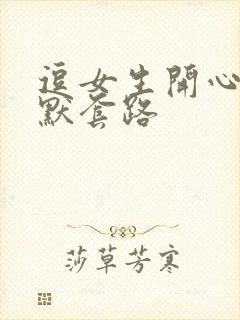 逗女生開心
默套路
莎草芳寒